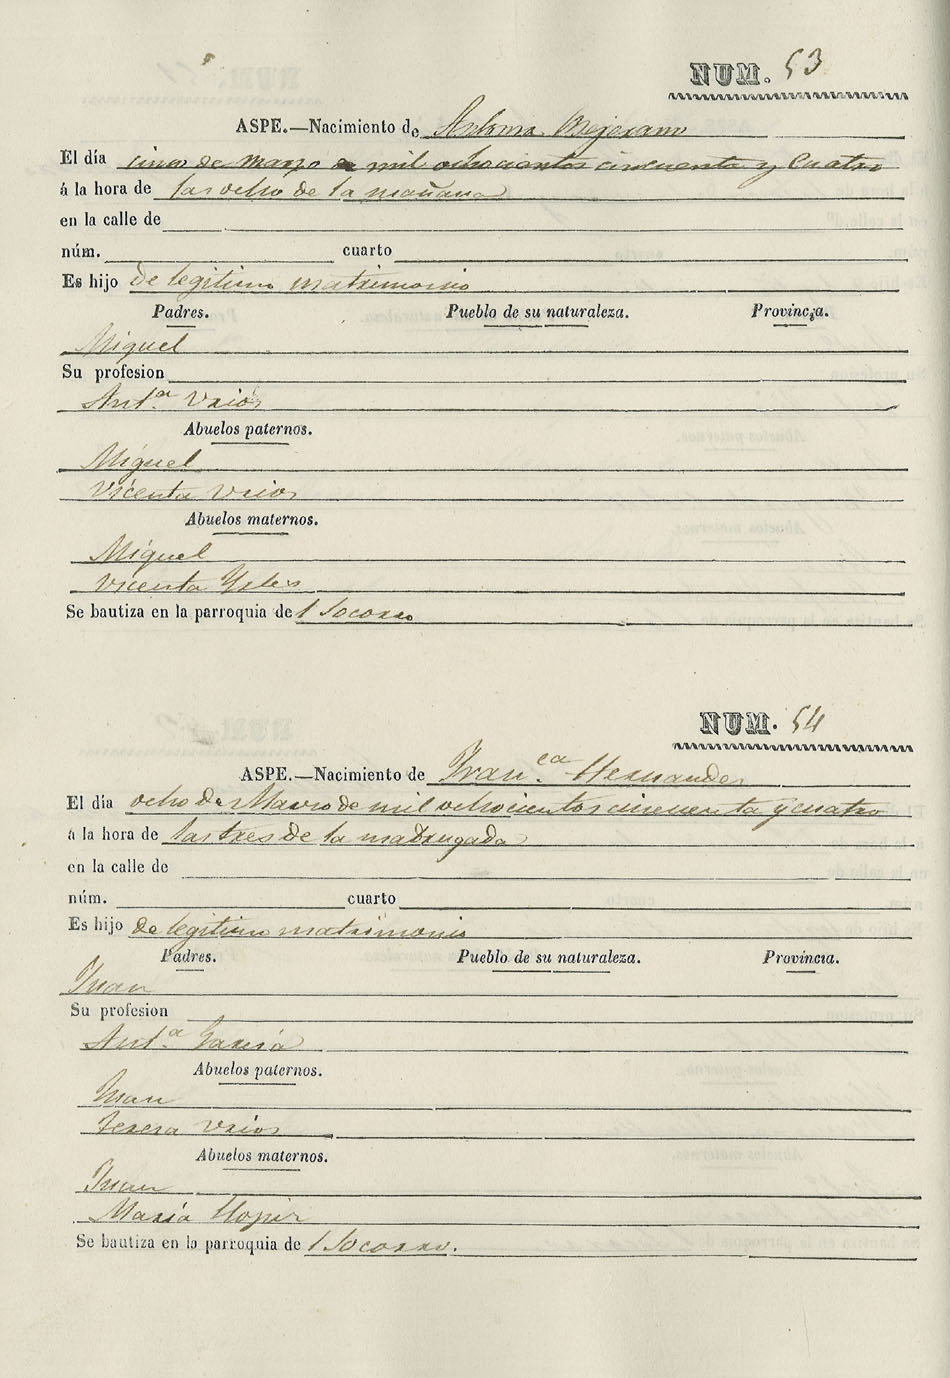 NUM. 53
ASPE.—Nacimiento de Antonia Mejerano
El día cinco de Marzo de mil ochocientos cincuenta y Cuatro
á la hora de las ocho de la mañana
en la calle de
núm. cuarto
Es hijo de legitimo matrimonio
Padres. Pueblo de su naturaleza. Provincia.
Miguel
Su profesion
Ant.ª Urios
Abuelos paternos.
Miguel
Vicenta Urios
Abuelos maternos.
Miguel
Vicenta
Se bautiza en la parroquia de l Socorro
NUM. 54
ASPE.—Nacimiento de Fran.ca Hernandez
El día ocho de Marzo de mil ochocientos cincuenta y cuatro
á la hora de las tres de la madrugada
en la calle de
núm. cuarto
Es hijo de legitimo matrimonio
Padres. Pueblo de su naturaleza. Provincia.
Juan
Su profesion
Ant.ª Garcia
Abuelos paternos.
Juan
Teresa Urios
Abuelos maternos.
Juan
Maria
Se bautiza en la parroquia de l Socorro.